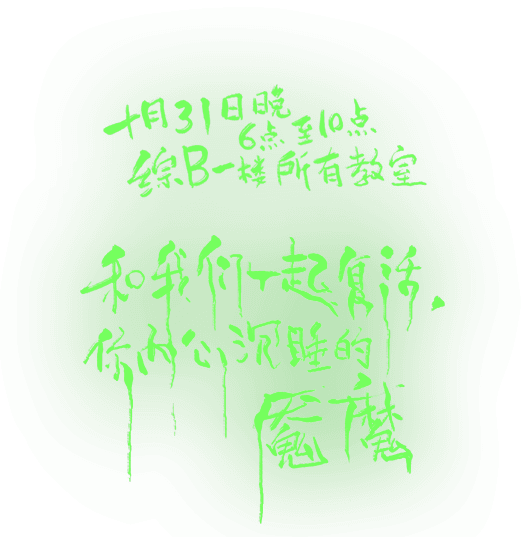 十月31日晚6点至10点
综B一楼所有教室
和我们一起复活,
你内心沉睡的
魇魔